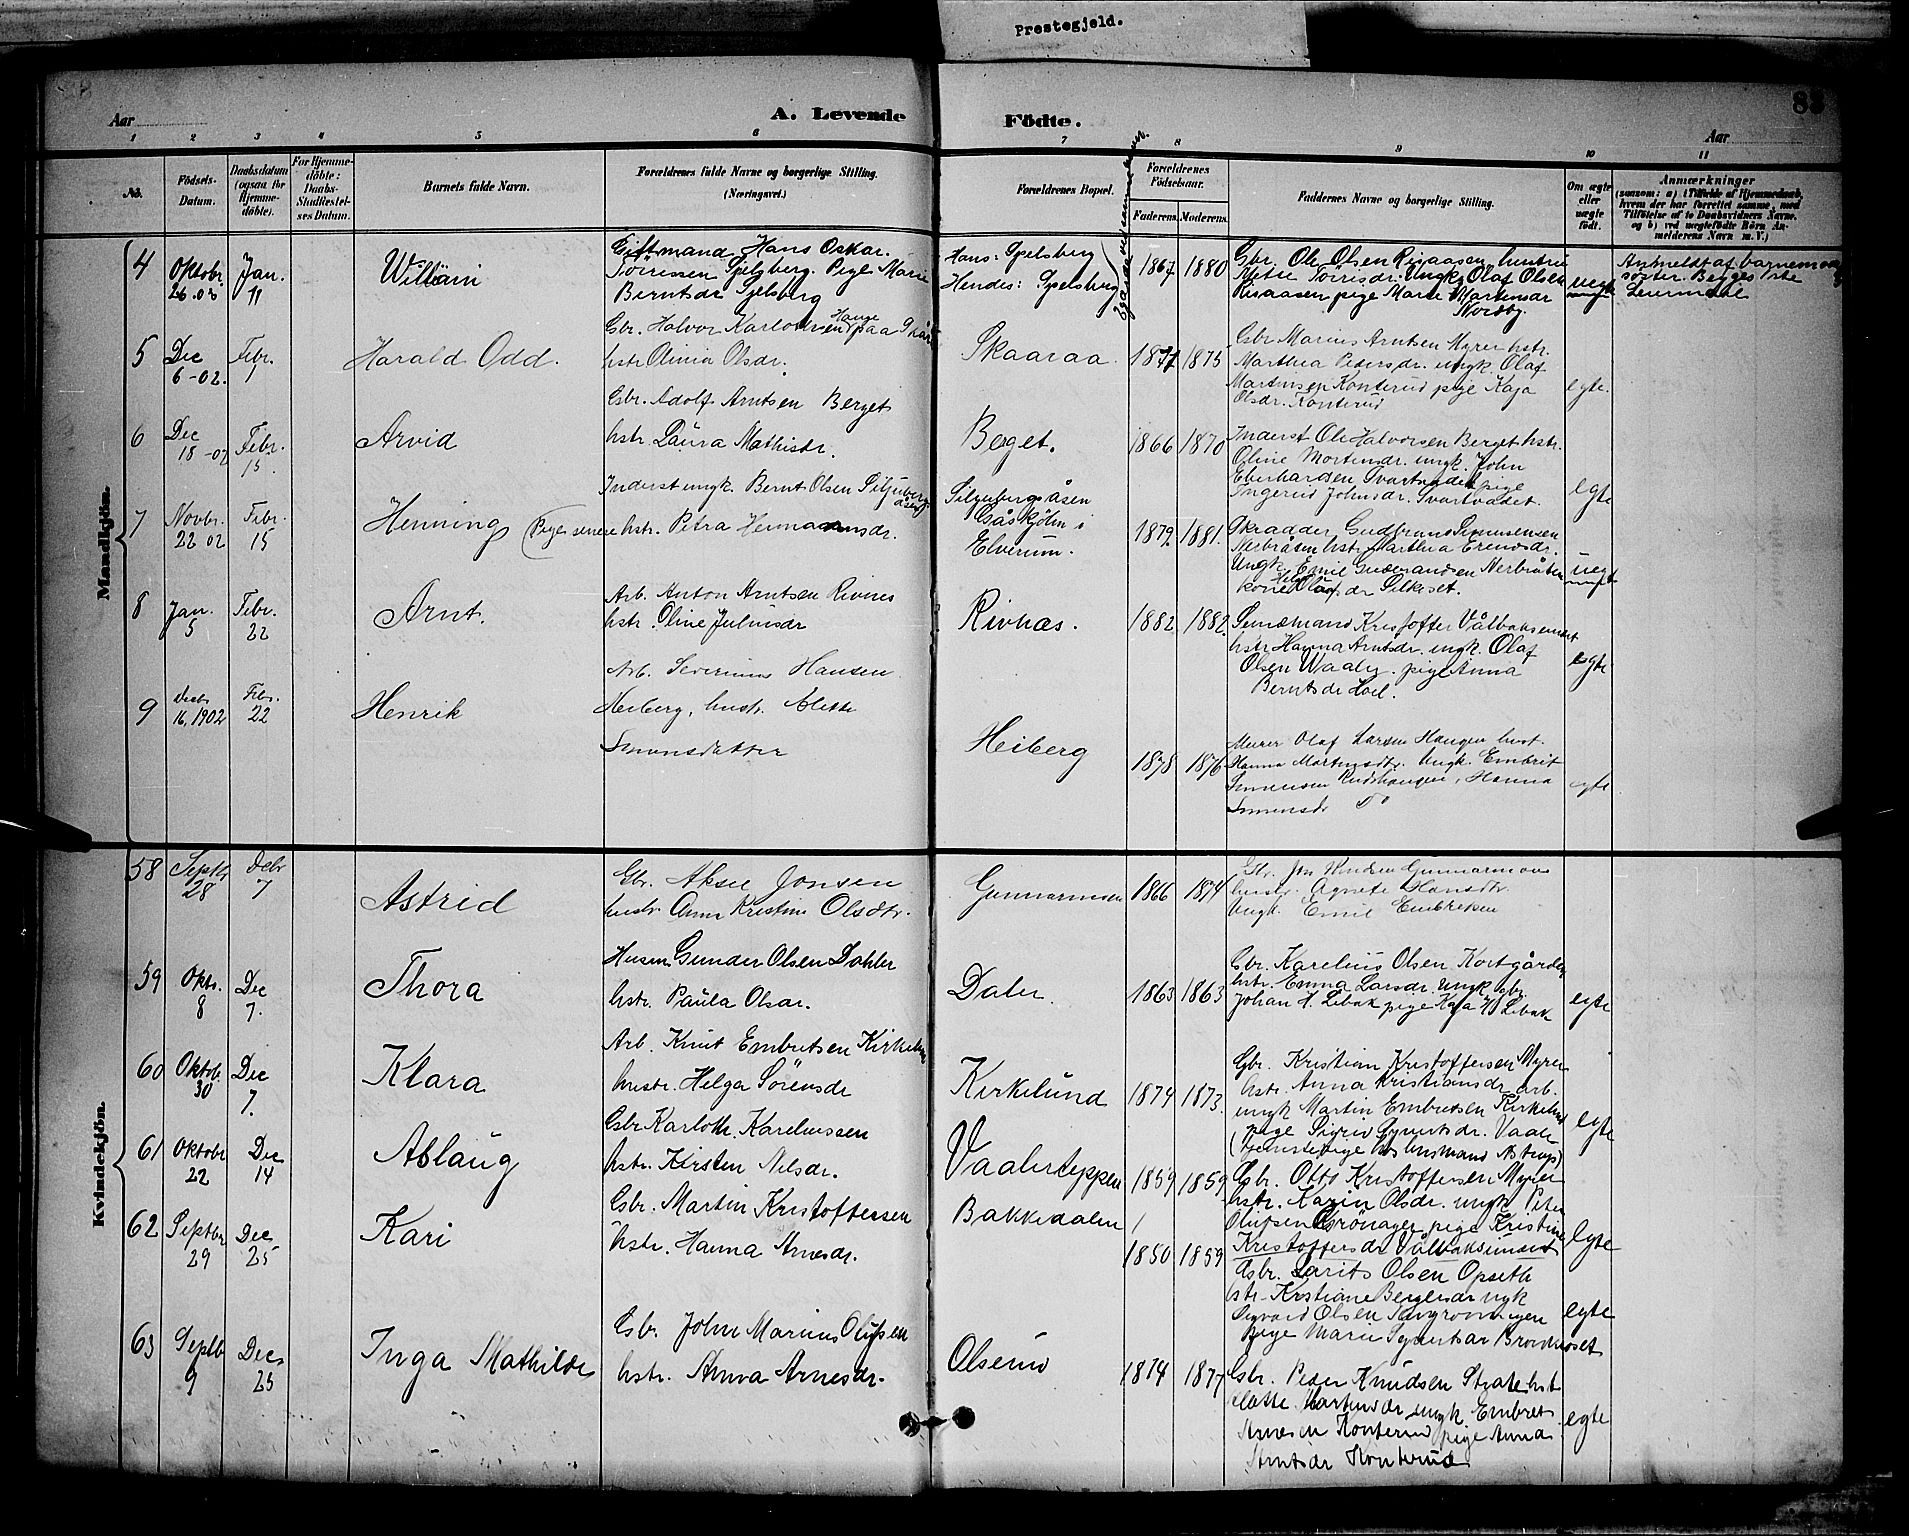 Prestegjeld.
Aar
A. Levende
Födte.
Aar
83
1 2 3 4 5 6 7 8 9 10 11
No.
Födsels-
Datum.
Daabsdatum
(ogsaa for
Hjemme-
döbte).
For Hjemme-
döbte:
Daabs-
Stadfestel-
ses Datum.
Barnets fulde Navn.
Forældrenes fulde Navne og borgerlige Stilling.
(Næringsvei.)
Forældrenes Bopæl.
Forældrenes
Födselsaar.
Faderens.
Moderens.
Faddernes Navne og borgerlige Stilling.
Om ægte
eller
uægte
født.
Anmærkninger
(saasom: a) i Tilfælde af Hjemmedaab,
hvem der har forrettet samme, med
Tilföielse af to Daabsvidners Navne,
og b) ved uægtefödte Börn An-
melderens Navn m. V.)
Mandkjön.
4 Oktobr. 26.02 Jan. 11 William
Giftmand Hans Oskar
Torressen Spelsberg. Pige Marie
Berntsdr
Hans: Spelsberg
Hendes: Spelsberg
1867 1880
Gbr. Ole Olsen Risaasen hustru
Ungk Olaf Olsen
Risaasen pige Marte Martensdr
Nordby.
uegte
Anmeldt af barnemoders
söster. Begges 1ste
Leiermaal
5 Dec 6-02. Febr. 1 Harald Odd.
Gbr. Halvor Karlothsen Hauge paa
hstr Olinia Olsdr.
Skaaraa. 1871 1875
Gbr Marius Arntsen Myrer hstr.
Marthea Pedersdr. ungk. Olaf
Martinsen Konterud pige Kaja
Olsdr. Konterud
egte.
6 Dec 18-02 Febr. 15. Arvid
Gbr. Adolf Arntsen Berget
hstr. Laura Mathisdr.
Berget. 1866 1870
Inderst Ole Halvorsen Berget hstr.
Oline Mortensdr. ungk. John
Eberhardsen Svartvadet pige
Ingerid Johnsdr. Svartvadet.
egte
7 Novbr. 22 02 Febr. 15 Henning
Inderst ungk. Bernt Olsen
(Pige senere hstr. Petra Hermansdr.
i
Elverum.
1872 1881.
Skradder Gudbrand Simensen
Nerbråten hstr Marthea Erensdr.
Ungk Emil Gudbrandsen Nerbråten
kone Helga Olafsdr Silkeset.
uegte
8 Jan. 5 Febr. 22 Arnt.
Arb. Anton Arntsen Rivnes
hstr. Oline Juliusdr
Rivnæs. 1882 1882.
Kristoffer Vålbaksmoet
hstr Hanna Arntsdr. ungk. Olaf
Olsen Waaler. pige Anna
Berntsdr Hoel.
egte
9 Decbr 16. 1902 Febr. 22 Henrik
Arb. Severinus Hansen
Heiberg, hustr. Alette
Simensdatter
Heiberg 1878 1876
Murer Olaf Larsen Haugen hust.
Hanna Martinsdtr. Ungk. Embrit
Simensen Rudshaugen, Hanna
Simensdr Do
egte
Kvindekjön.
58 Septbr 28 Debr 7 Astrid
Gbr. Aksel Jonsen
hustr. Anne Kristine Olsdtr.
Gunnarmoen 1866 1874
Gbr. Jon Gunnarmoen
hustr. Agnete Hansdtr.
Ungk. Emil Embretsen
59 Oktr. 8 Dec 7. Thora
Husm. Gunder Olsen Dahler
hstr. Paula Olsdr.
Daler. 1863 1863
Gbr. Karelius Olsen Kortgården
hstr. Emma Larsdr. ungk gbr
Johan H. Lebak pige Kaja H. Lebak
egte
60 Oktob. 30 Dec 7. Klara
Arb. Knut Embretsen Kirkelund
hustr. Helga Sörensdr
Kirkelund 1874 1873.
Gbr. Kristian Kristoffersen Myrer
hstr. Anna Kristiansdr arb.
ungk Martin Embretsen Kirkelund
pige Sigrid Gjertsdr. Vaaler
(tjenestepige hos lensmand Astrup)
egte
61 Oktobr 22 Dec 14 Aslaug
Gbr Karloth. Kareliussen
hstr. Kirsten Nilsdr.
Vaalerteppen 1859 1859
Gbr. Otto Kristoffersen Myrer
hstr. Karin Olsdr. ungk Peter
Olufsen Grönager pige Kristine
Kristoffersdr Vålbaksmoet
egte
62 Septbr 29 Dec. 25 Kari
Gbr. Martin Kristoffersen
hstr. Hanna Arnesdr.
Bakkedalen 1850 1859
Gbr. Larits Olsen Opseth
hstr. Kristiane Bergersdr ugk
Sigvard Olsen
pige Marie Braskmoset
egte
63 Septb 9 Dec. 25 Inga Mathilde
Gbr. John Marius Olufsen
hstr. Anna Arnesdr.
Olserud 1874 1877
Gbr. Peder Knudsen Strate hst
Martinsdr ungk. Embret
Arnesen Konterud pige Anna
Arntsdr Konterud
egte